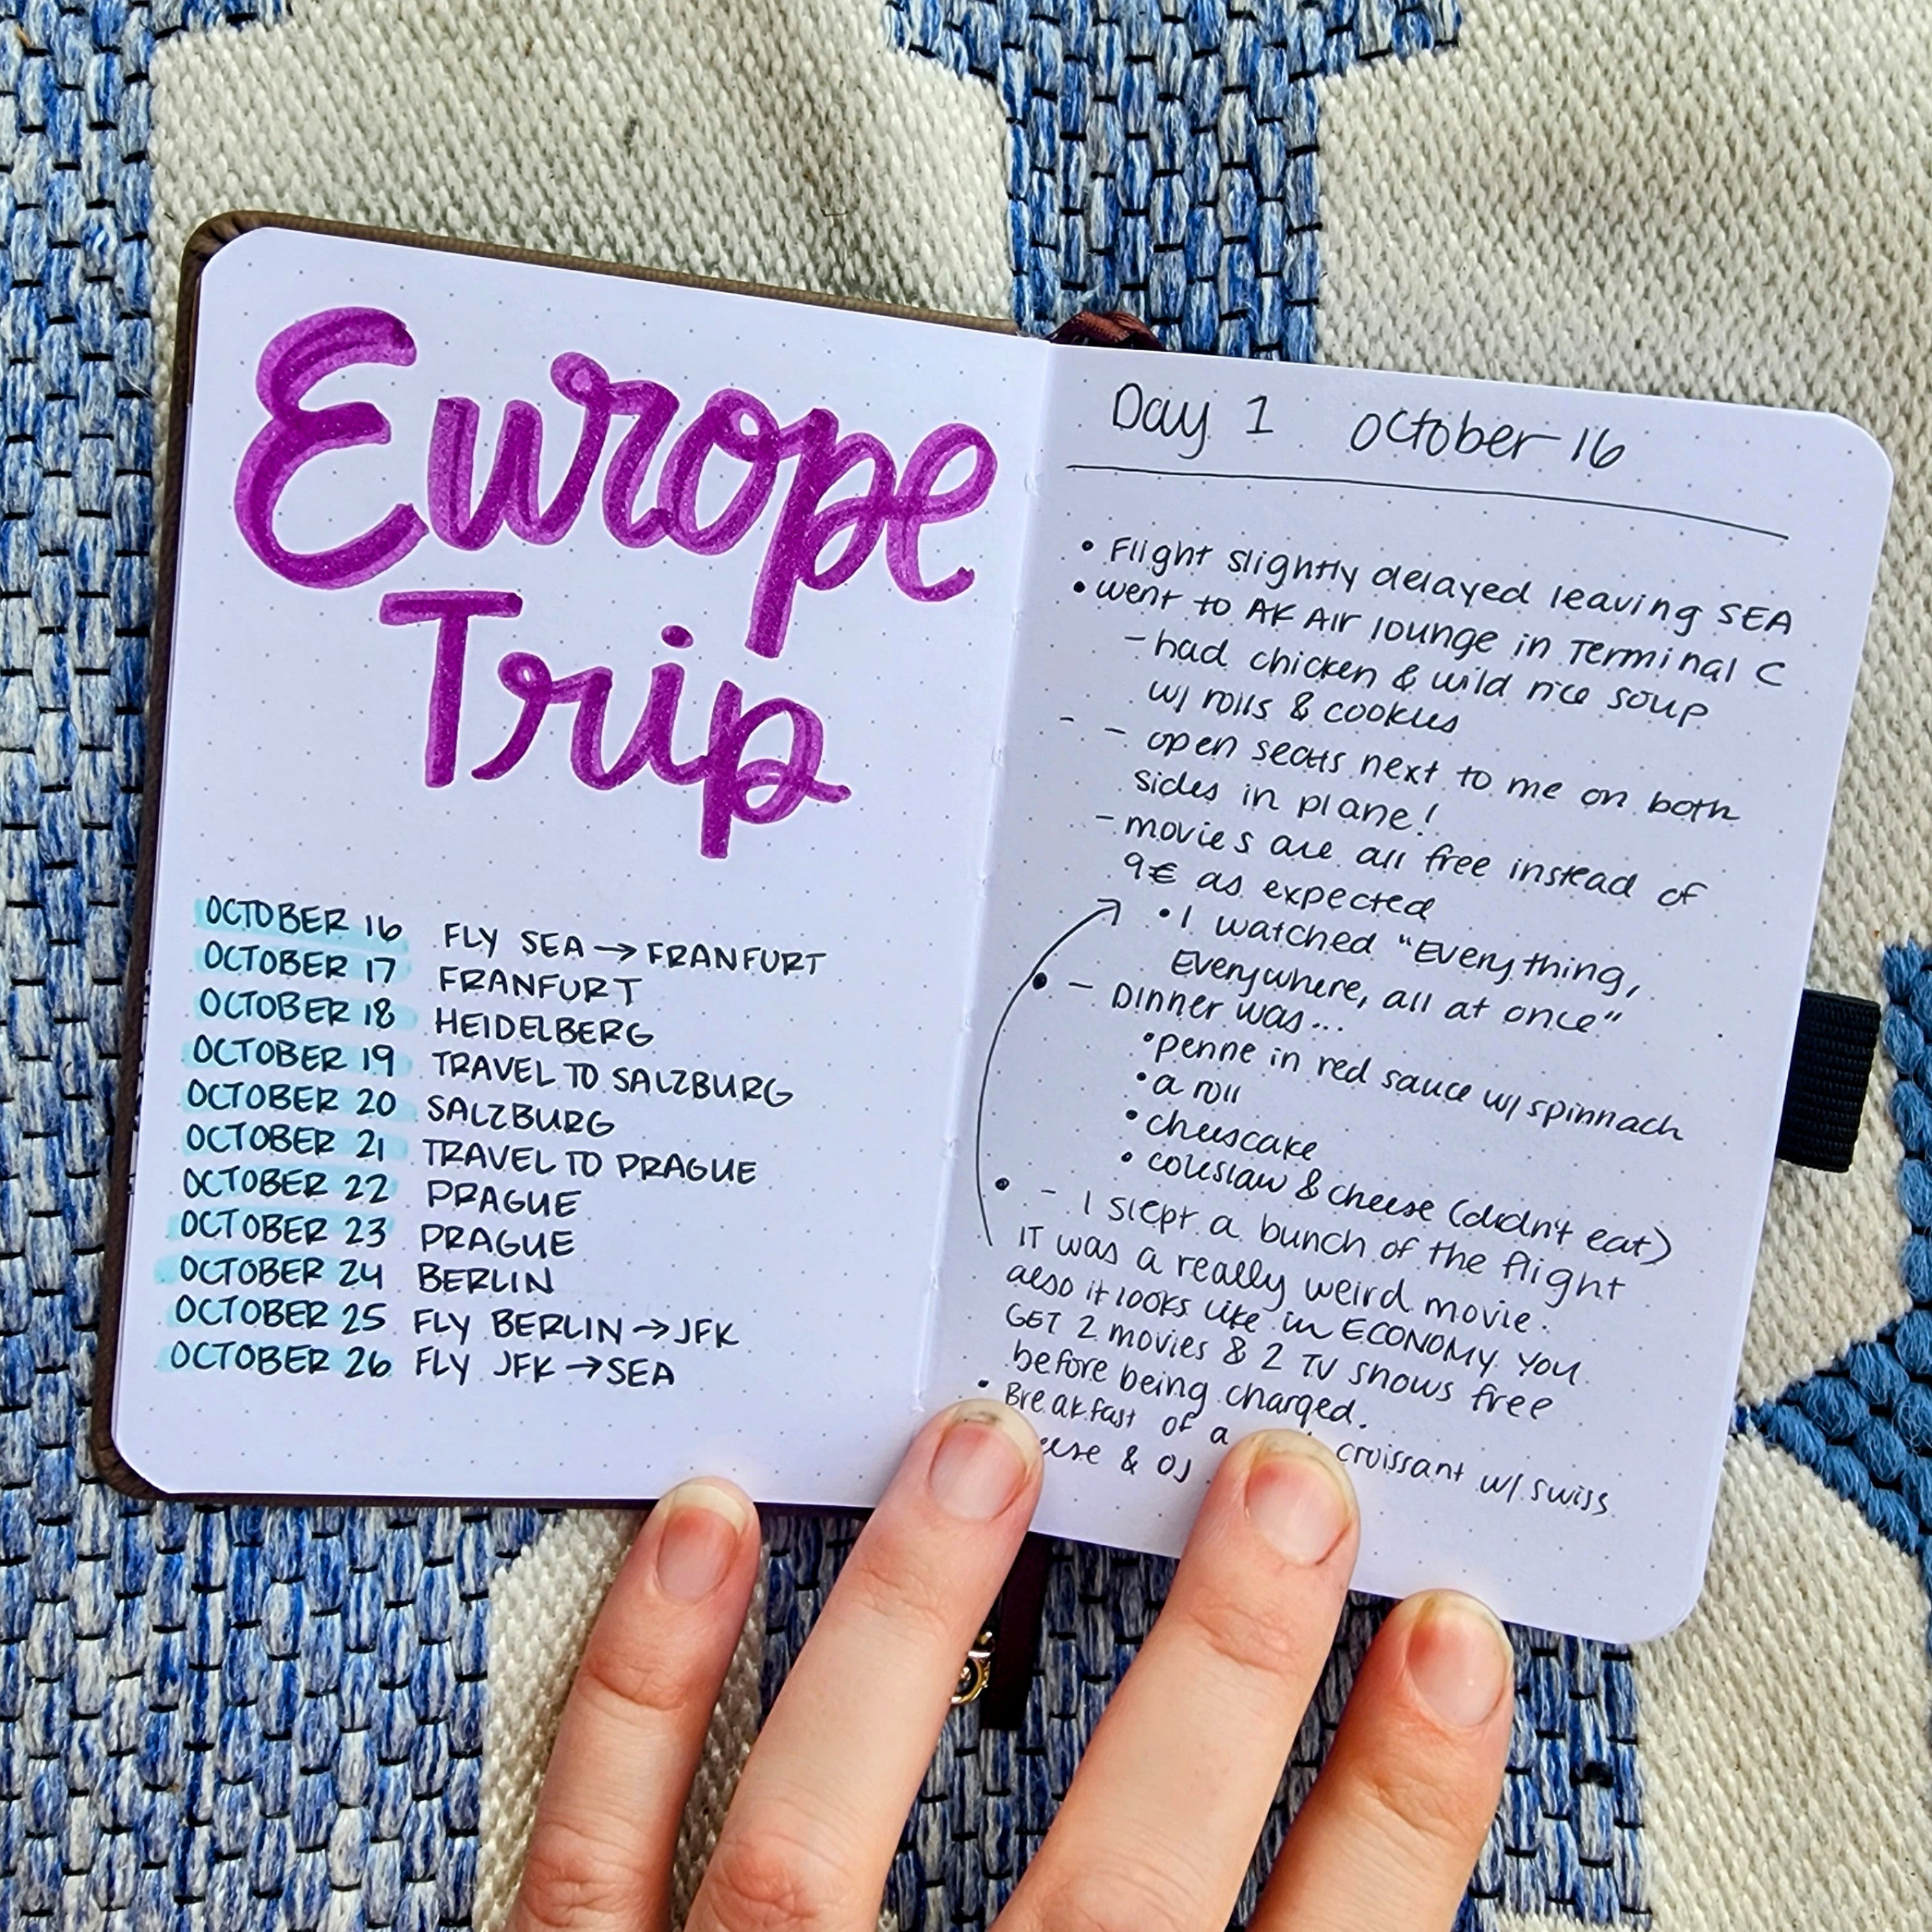 Europe
Trip
OCTOBER 16 FLY SEA → FRANFURT
OCTOBER 17 FRANFURT
OCTOBER 18 HEIDELBERG
OCTOBER 19 TRAVEL TO SALZBURG
OCTOBER 20 SALZBURG
OCTOBER 21 TRAVEL TO PRAGUE
OCTOBER 22 PRAGUE
OCTOBER 23 PRAGUE
OCTOBER 24 BERLIN
OCTOBER 25 FLY BERLIN → JFK
OCTOBER 26 FLY JFK → SEA
Day 1 October 16
• Flight slightly delayed leaving SEA
• went to AK Air lounge in Terminal C
- had chicken & wild rice soup
w/ rolls & cookies
- - open seats next to me on both
sides in plane!
- movies are all free instead of
9€ as expected
• I watched "Everything,
Everywhere, all at once"
• - Dinner was...
• penne in red sauce w/ spinnach
• a roll
• cheescake
• coleslaw & cheese (didn't eat)
• - I slept a bunch of the flight
IT was a really weird movie.
also it looks like in ECONOMY you
GET 2 movies & 2 TV shows free
before being charged.
• Breakfast of a croissant w/ swiss
& OJ